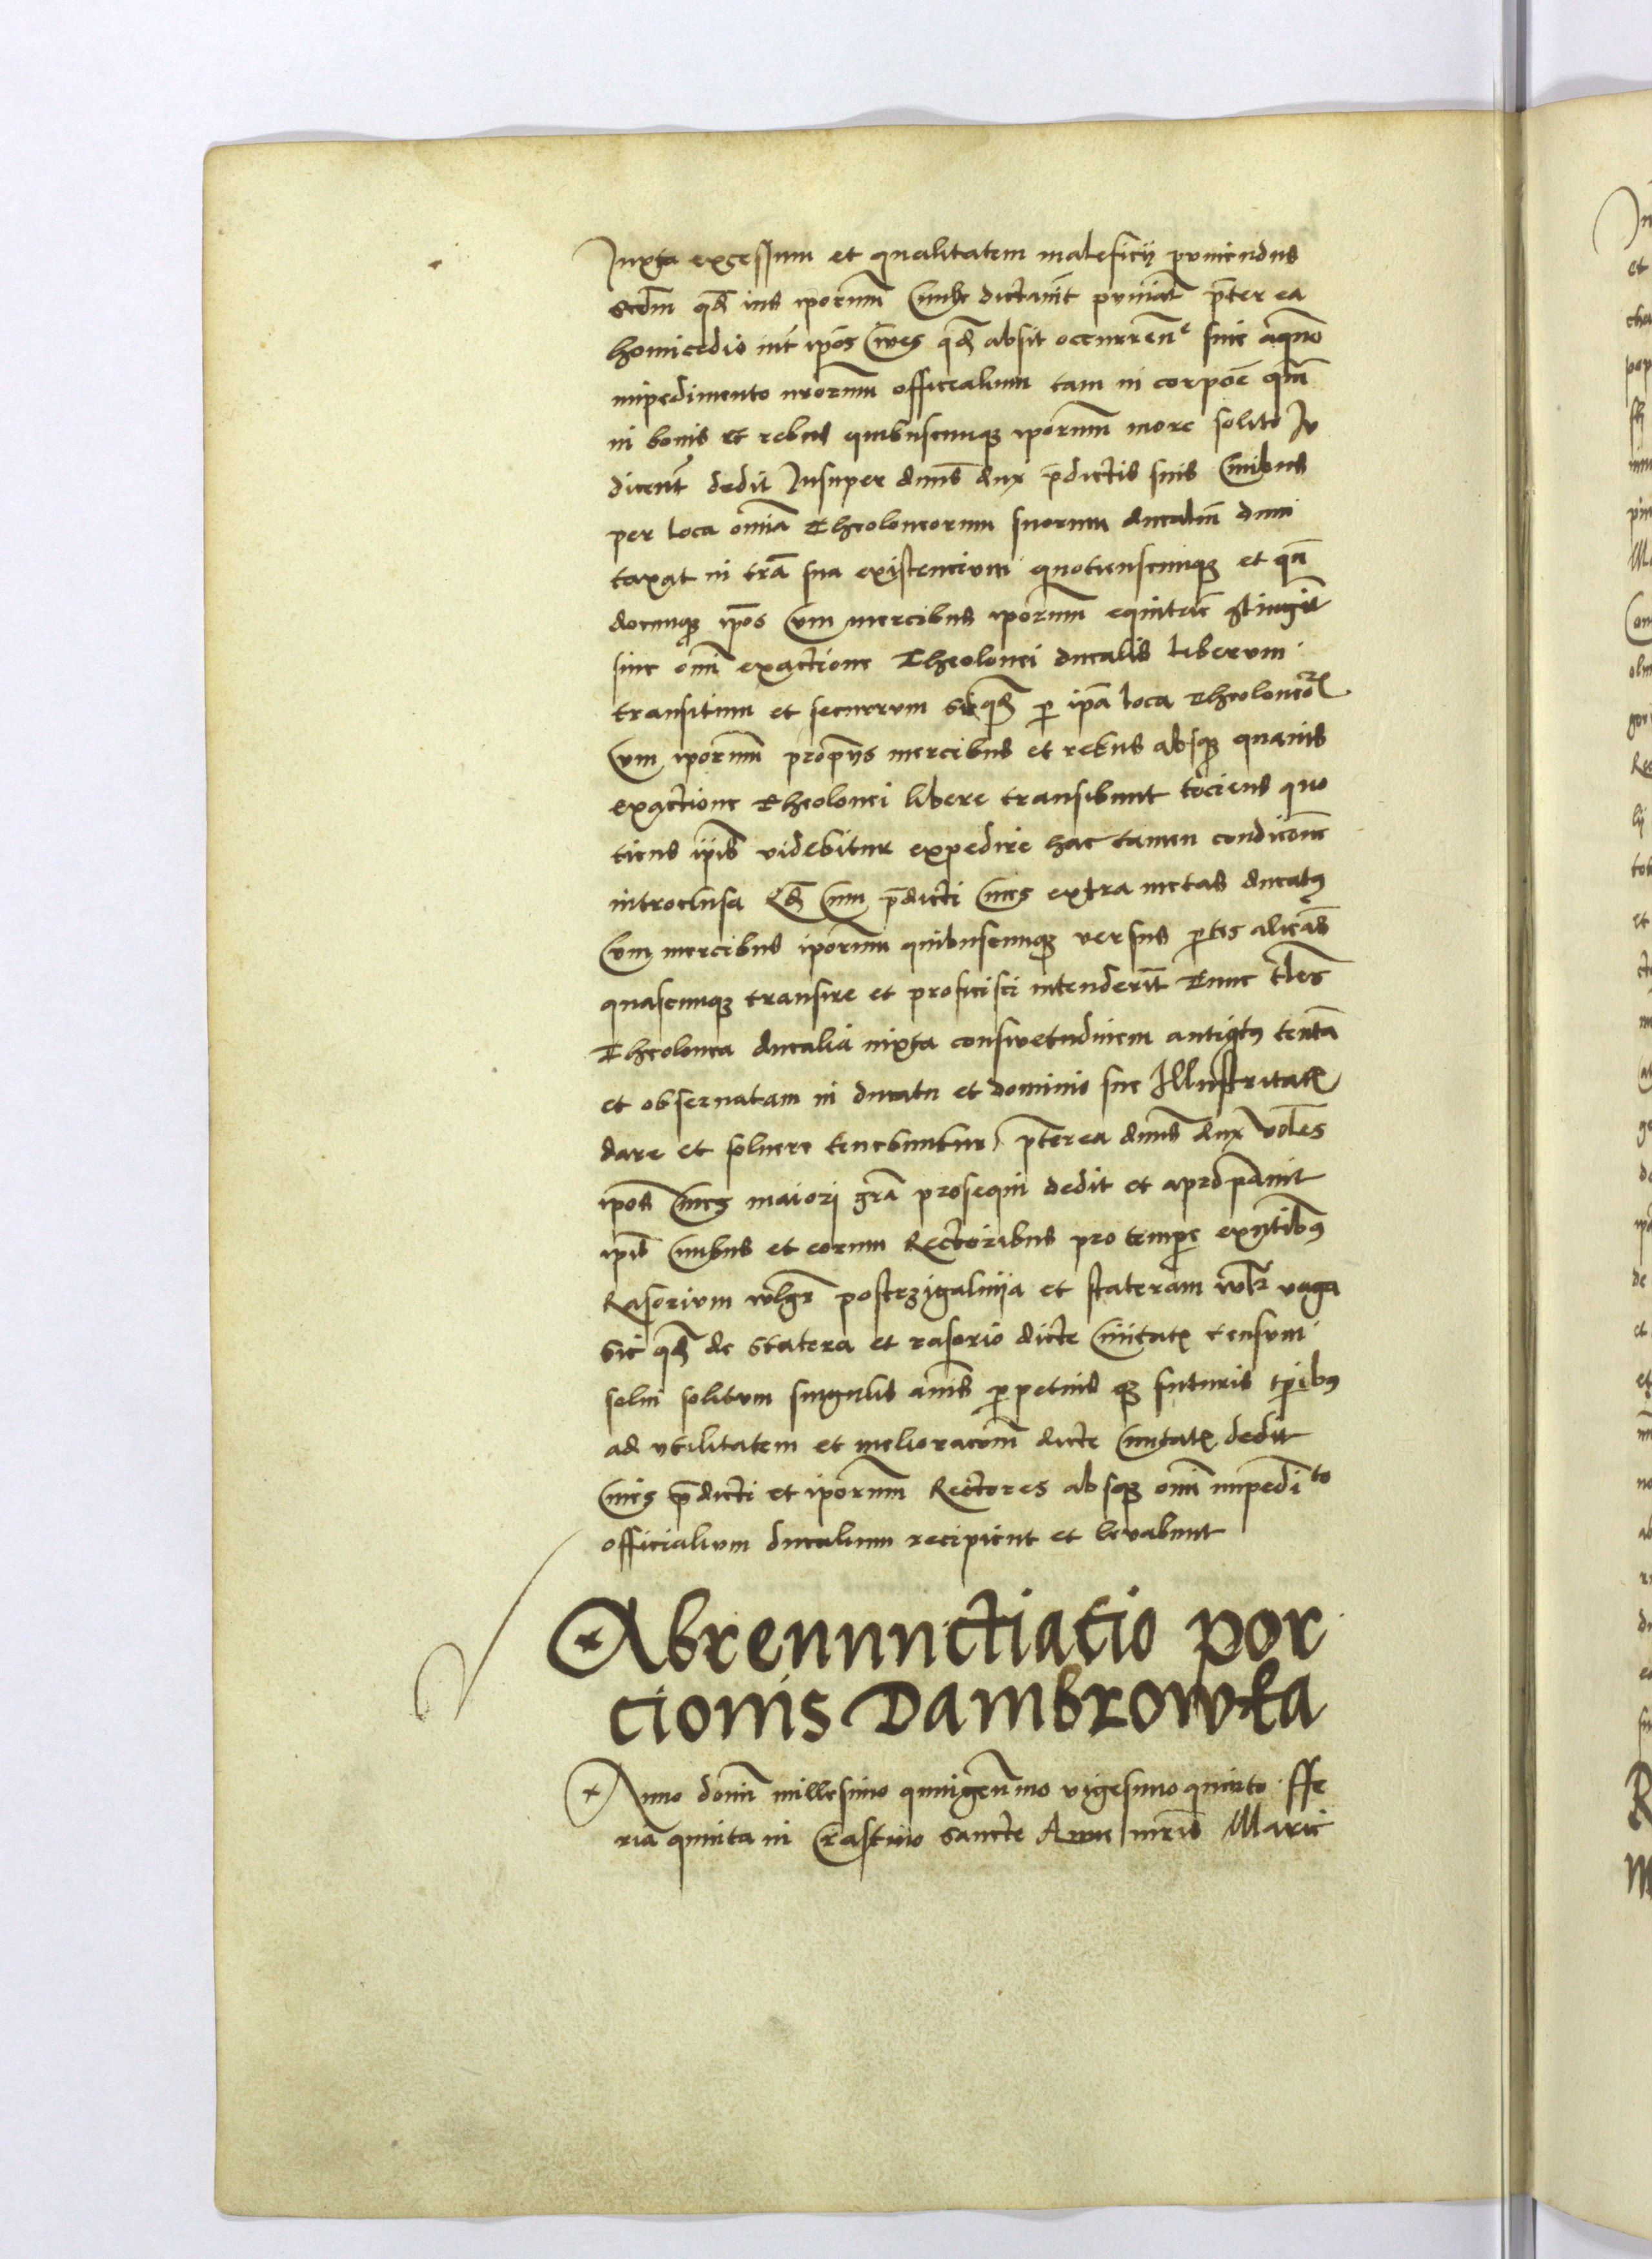 Juxta excessum et qualitatem maleficij puniendus
Scdm qd ius iporum Ciuile dictauit puniat p̄ter ea
homicidio int ipos Ciues qd absit occurren̄te sine aliquo
impedimento nrorum officialium tam in corpore qm̄
in bonis et rebus quibuscunque iporum more solito Ju
dicent dedit Insuper dn̄s dux p̄dictis suis Ciuibus
per loca om̄ia Theoloneorum suorum ducaliū dum
taxat in trā sua existencium quotienscunque et qn̄
docunque ip̄os Cum mercibus iporum equitare 9tingit
sine om̄i exactione Theolonei ducalis liberum
transitum et securum Sic qd p ip̄a loca Theoloneor
Cum iporum propijs mercibus et rebus absque quauis
exactione Theolonei libere transibunt tociens quo
tiens ip̄is videbitur expedire hac tamen condicōne
introclusa Qd Cum p̄dicti Ciues extra metas ducatus
Cum mercibus iporum quibuscunque versus ptes alienas
quascunque transire et proficisci intenderīt Tunc tales
Theolonea ducalia iuxta consuetudinem antiquitus tentā
et obseruatam in ducatu et dominio sue Illustritatis
dare et soluere tenebuntur p̄terea dn̄s dux volēs
ipos Ciues maiori grā prosequi dedit et apropauit
ip̄is Ciuibus et eorum Rectoribus pro tempore exn̄tibus
Rasorium wlgr postrzigalnija et stateram wlr vaga
Sic qd de Statera et rasorio dicte Ciuitatis censum
solui solitum singulis annis ppetuis que futuris tpibus
ad vtilitatem et melioracōnem dicte Ciuitatis dedit
Ciues p̄dicti et iporum Rectores absque om̄i impedi to
officialium ducalium recipient et leuabunt
Abrenunctiatio por
cionis Dambrowka
Anno domini millesimo quingen̄mo vigesimo quinto ffe
ria quinta in Crastino Sancte Anne mr̄is Marie